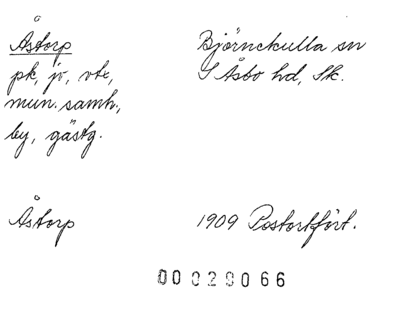 Åstorp Björnekulla sn
pk, jv, vtx, S Åsbo hd, Sk.
mun. samh.,
by, gästg.
Åstorp 1909 Postortfört.
00020066